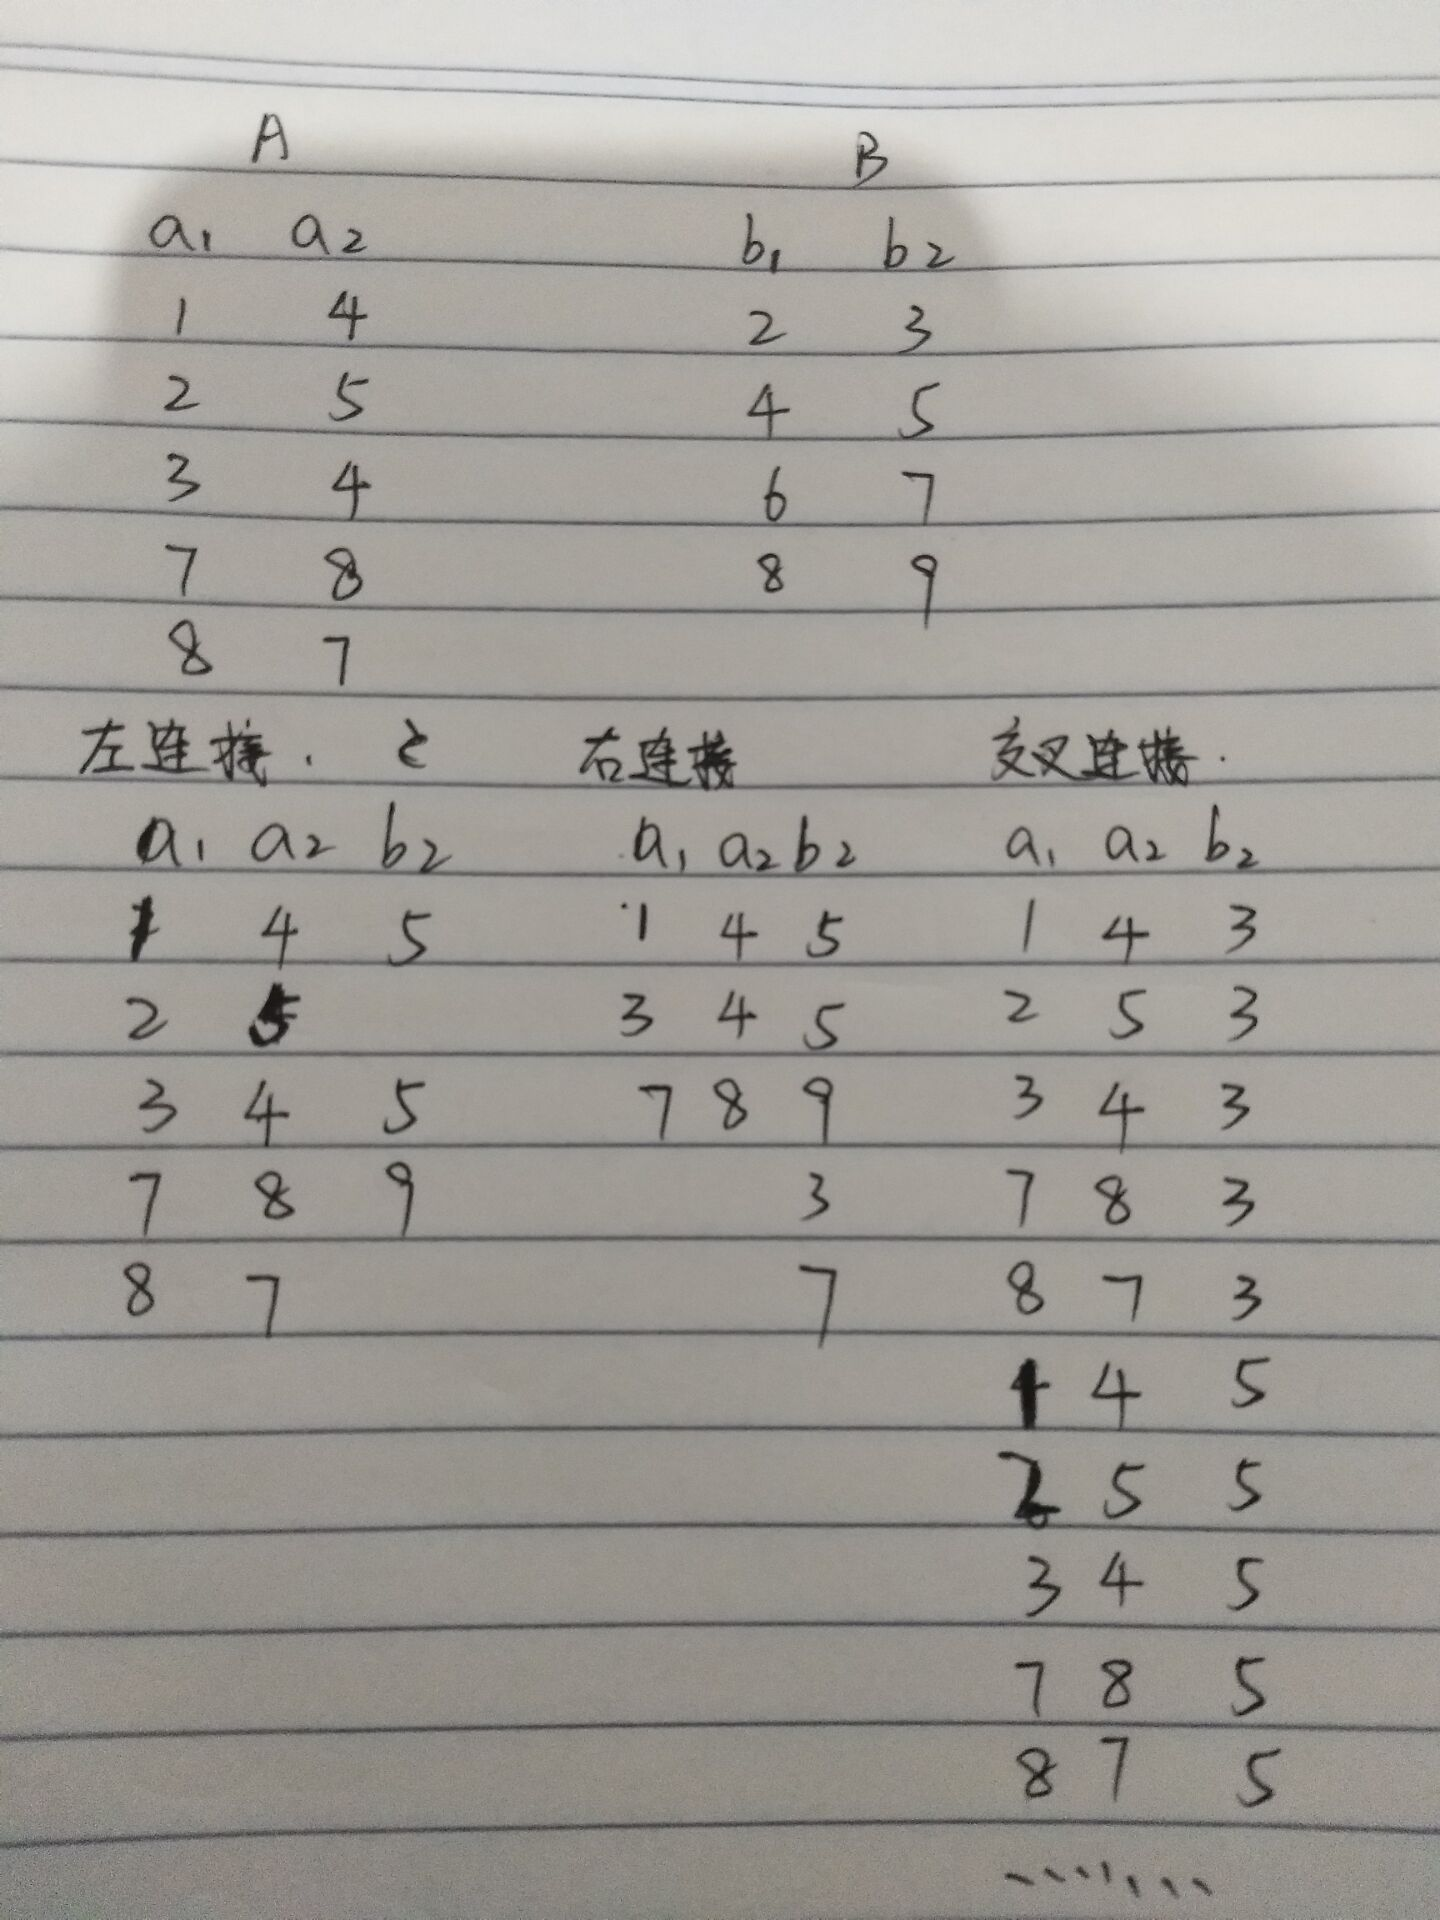 A B
a₁ a₂ b₁ b₂
1 4 2 3
2 5 4 5
3 4 6 7
7 8 8 9
8 7
左连接. 右连接 交叉连接.
a₁ a₂ b₂ a₁ a₂ b₂ a₁ a₂ b₂
1 4 5 1 4 5 1 4 3
2 5 3 4 5 2 5 3
3 4 5 7 8 9 3 4 3
7 8 9 3 7 8 3
8 7 7 8 7 3
1 4 5
2 5 5
3 4 5
7 8 5
8 7 5
.......